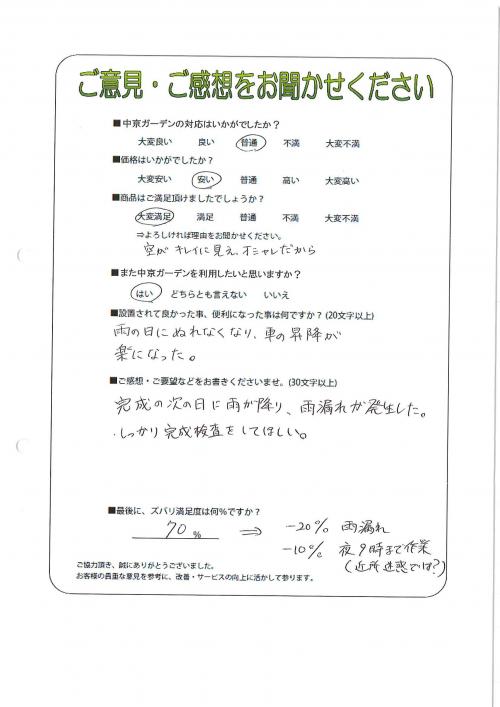 ご意見・ご感想をお聞かせください
■中京ガーデンの対応はいかがでしたか？
大変良い 良い 普通 不満 大変不満
■価格はいかがでしたか？
大変安い 安い 普通 高い 大変高い
■商品はご満足頂けましたでしょうか？
大変満足 満足 普通 不満 大変不満
⇒よろしければ理由をお聞かせください。
空がキレイに見え、オシャレだから
■また中京ガーデンを利用したいと思いますか？
はい どちらとも言えない いいえ
■設置されて良かった事、便利になった事は何ですか？(20文字以上)
雨の日にぬれなくなり、車の昇降が
楽になった。
■ご感想・ご要望などをお書きくださいませ。(30文字以上)
完成の次の日に雨が降り、雨漏れが発生した。
しっかり完成検査をしてほしい。
■最後に、ズバリ満足度は何％ですか？
70 % ⇒ -20% 雨漏れ
-10% 夜9時まで作業
(近所迷惑では?)
ご協力頂き、誠にありがとうございました。
お客様の貴重な意見を参考に、改善・サービスの向上に活かして参ります。